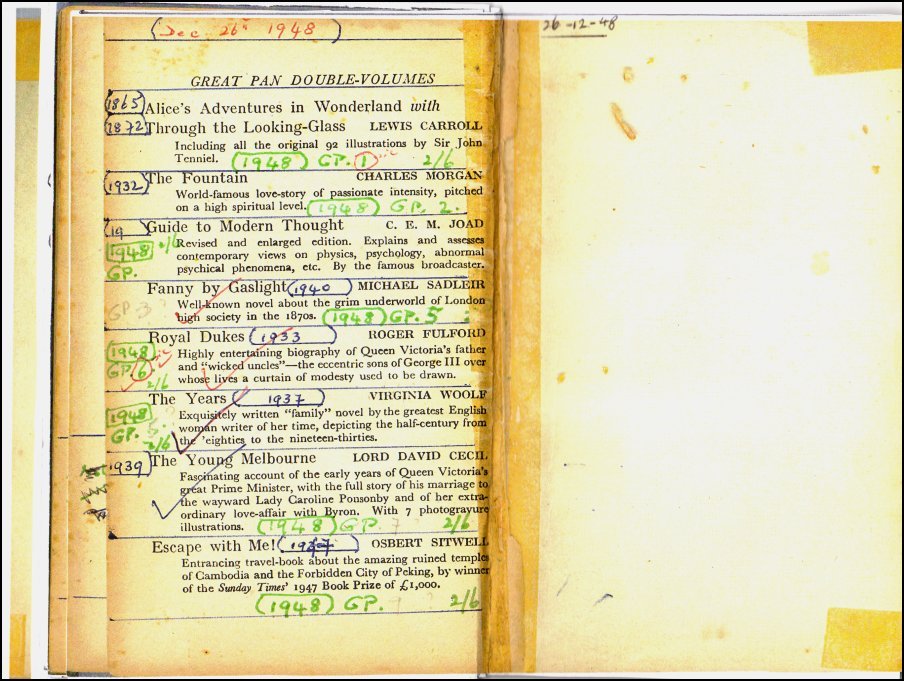 (Dec. 26th 1948)
26-12-48
GREAT PAN DOUBLE-VOLUMES
1865 Alice's Adventures in Wonderland with
1872 Through the Looking-Glass LEWIS CARROLL
Including all the original 92 illustrations by Sir John
Tenniel. (1948) GP. 1 2/6
1932 The Fountain CHARLES MORGAN
World-famous love-story of passionate intensity, pitched
on a high spiritual level. (1948) GP. 2.
19 Guide to Modern Thought C. E. M. JOAD
1948 2/6 Revised and enlarged edition. Explains and assesses
contemporary views on physics, psychology, abnormal
GP. psychical phenomena, etc. By the famous broadcaster.
Fanny by Gaslight (1940) MICHAEL SADLEIR
GP 3 Well-known novel about the grim underworld of London
high society in the 1870s. (1948) GP. 5
Royal Dukes (1933) ROGER FULFORD
1948 Highly entertaining biography of Queen Victoria's father
GP 6 and "wicked uncles"—the eccentric sons of George III over
2/6 whose lives a curtain of modesty used to be drawn.
The Years (1937) VIRGINIA WOOLF
1948 Exquisitely written "family" novel by the greatest English
GP. 5. woman writer of her time, depicting the half-century from
2/6 the 'eighties to the nineteen-thirties.
1939 The Young Melbourne LORD DAVID CECIL
Fascinating account of the early years of Queen Victoria's
great Prime Minister, with the full story of his marriage to
the wayward Lady Caroline Ponsonby and of her extra-
ordinary love-affair with Byron. With 7 photogravure
illustrations. (1948) GP. 7 2/6
Escape with Me! OSBERT SITWELL
Entrancing travel-book about the amazing ruined temples
of Cambodia and the Forbidden City of Peking, by winner
of the Sunday Times' 1947 Book Prize of £1,000.
(1948) GP. 2/6